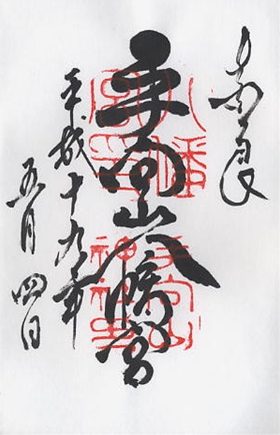 奈良
手向山八幡宮
平成十九年
五月四日